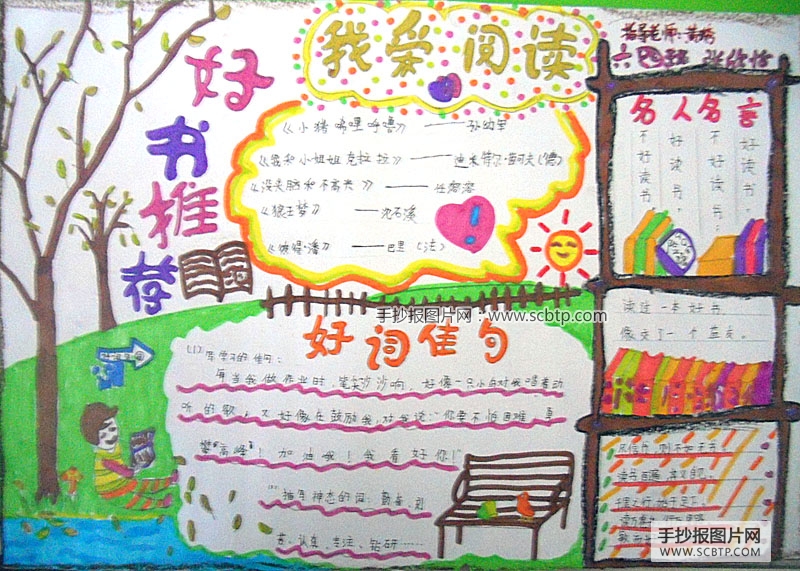 我爱阅读
指导老师:黄
六四班
好书推荐
《小猪唏哩呼噜》——孙幼军
《我和小姐姐克拉拉》——迪米特尔·茵可夫(德)
《没头脑和不高兴》——任溶溶
《狼王梦》——沈石溪
《彼得·潘》——巴里(法)
名人名言
好读书
不好读书,
好读书,
不好读书。
读过一本好书
像交了一个益友。
手抄报图片网:www.scbtp.com
好词佳句
(1)写学习的佳句:
每当我做作业时,笔尖沙沙响,好像一只小鸟对我唱着动
听的歌,又好像在鼓励我,对我说:"你要不怕困难,勇
攀"高峰"!加油哦!我看好你!"
(2)描写神态的词:勤奋、刻
苦、认真、专注、钻研……
读书百遍,其义自见。
千里之行,始于足下。
手抄报图片网
WWW.SCBTP.COM